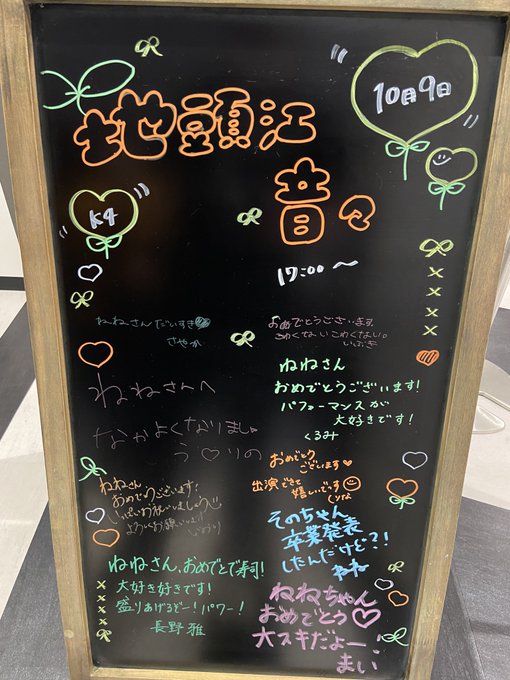 10月9日
地頭江
音々
K4
17:00〜
ねねさんだいすき♡
さやか
おめでとうございます。
こわくないこわくない。
いぶき
ねねさん
おめでとうございます!
パフォーマンスが
大好きです!
くるみ
ねねさんへ
なかよくなりましょ
う♡りの
おめでとう
ございます♡
出演できて
嬉しいです
ねねさん
おめでとうございます!
いっぱいお祝いしましょう
よろしくお願いします
そのちゃん
卒業発表
したんだけど?!
ねねさん、おめでとで寿司!
大好き好きです!
盛りあげるぞー!パワー!
長野雅
ねねちゃん
おめでとう♡
大スキだよー!
まい